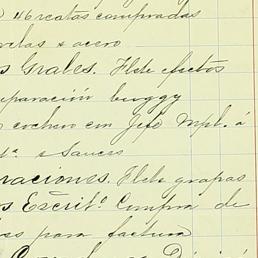 46 reatas compradas
velas & acero
s Grales. Flete efectos
eparación buggy
cochero con Jefe Mpl. á
t.ª e Sauces
raciones. Flete grapas
s Escrit.º Compra de
para factura